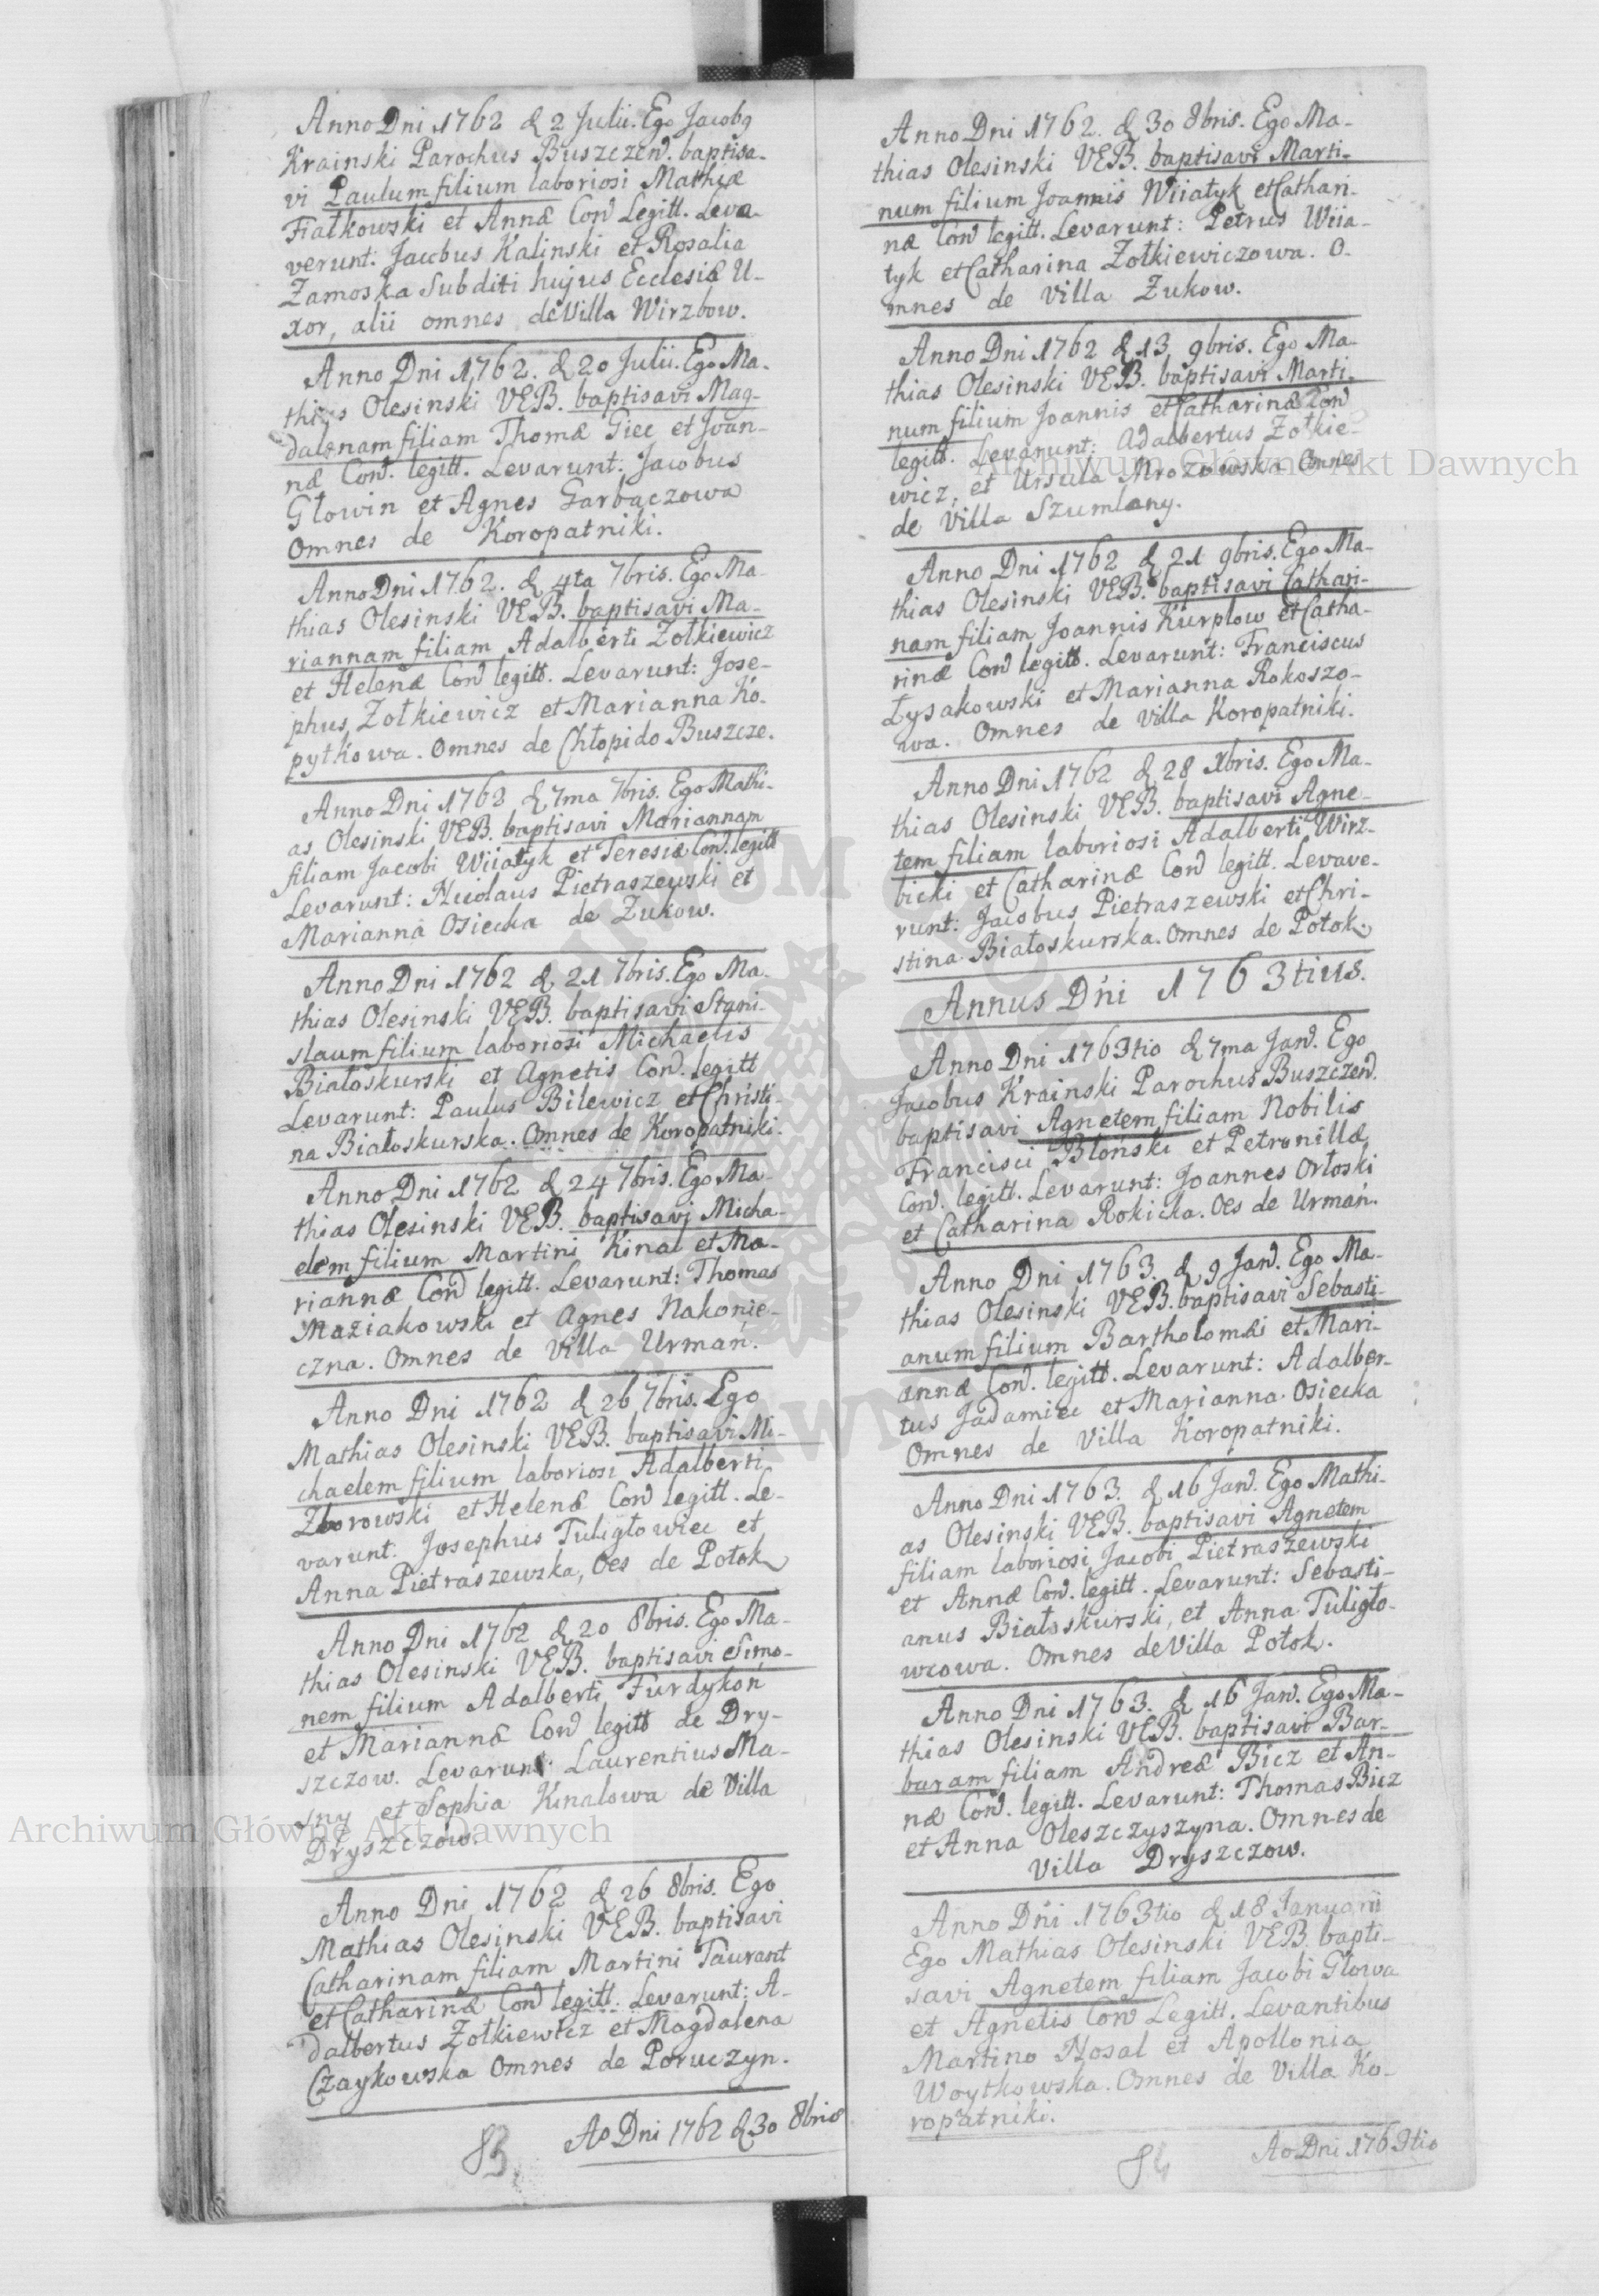 Anno Dni 1762 d 2 Julii. Ego Jacobg
Krainski Parochus Buszczen. baptisa-
vi Paulum filium laboriosi Mathiæ
Fiałkowski et Annæ Con Legitt. Leva-
verunt: Jacobus Kalinski et Rosalia
Zamoska Subditi hujus Ecclesiæ U-
xor, alii omnes de Villa Wirzbow.
Anno Dni 1762. d 20 Julii. Ego Ma-
thias Olesinski VEB. baptisavi Mag-
dalenam filiam Thomæ Giec et Joan-
næ Con. legitt. Levarunt: Jacobus
Głowin et Agnes Garbaczowa
Omnes de Koropatniki.
Anno Dni 1762. d 4ta 7bris. Ego Ma-
thias Olesinski VEB. baptisavi Ma-
riannam filiam Adalberti Zołkiewicz
et Helenæ Con legitt. Levarunt: Jose-
phus Zołkiewicz et Marianna Ko-
pytkowa. Omnes de Chłopido Buszcze.
Anno Dni 1762 d 7ma 7bris. Ego Mathi-
as Olesinski VEB. baptisavi Mariannam
filiam Jacobi Wiiatyk et Teresiæ Con. legitt
Levarunt: Nicolaus Pietraszewski et
Marianna Osiecka de Zukow.
Anno Dni 1762 d 21 7bris. Ego Ma-
thias Olesinski VEB. baptisavi Stani-
slaum filium laboriosi Michaelis
Białoskurski et Agnetis Con. legitt
Levarunt: Paulus Bilewicz et Christi-
na Białoskurska. Omnes de Koropatniki.
Anno Dni 1762 d 24 7bris. Ego Ma-
thias Olesinski VEB. baptisavi Micha-
elem filium Martini Kinal et Ma-
riannæ Con legitt. Levarunt: Thomas
Maziakowski et Agnes Nakonie-
czna. Omnes de Villa Urmań.
Anno Dni 1762 d 26 7bris. Ego
Mathias Olesinski VEB. baptisavi Mi-
chaelem filium laboriosi Adalberti
Zborowski et Helenæ Con legitt. Le-
varunt: Josephus Tuligłowiec et
Anna Pietraszewska, Oes de Potok
Anno Dni 1762 d 20 8bris. Ego Ma-
thias Olesinski VEB. baptisavi Simo-
nem filium Adalberti Furdykoń
et Mariannæ Con legitt de Dry-
szczow. Levarunt: Laurentius Ma-
sny et Sophia Kinalowa de Villa
Dryszczow.
Anno Dni 1762 d 26 8bris. Ego
Mathias Olesinski VEB. baptisavi
Catharinam filiam Martini Taurant
et Catharinæ Con legitt. Levarunt: A-
dalbertus Zołkiewicz et Magdalena
Czaykowska Omnes de Poruczyn.
Ao Dni 1762 d 30 8bris
83
Anno Dni 1762. d 30 8bris. Ego Ma-
thias Olesinski VEB. baptisavi Marti-
num filium Joannis Wiiatyk et Cathari-
næ Con legitt. Levarunt: Petrus Wiia-
tyk et Catharina Zołkiewiczowa. O-
mnes de Villa Zukow.
Anno Dni 1762 d 13 9bris. Ego Ma-
thias Olesinski VEB. baptisavi Marti-
num filium Joannis et Catharinæ Con
legitt. Levarunt: Adalbertus Zołkie-
wicz, et Ursula Mrozowska Omnes
de Villa Szumlany.
Anno Dni 1762 d 21 9bris. Ego Ma-
thias Olesinski VEB. baptisavi Cathari-
nam filiam Joannis Kurplow et Catha-
rinæ Con legitt. Levarunt: Franciscus
Łysakowski et Marianna Rokoszo-
wa. Omnes de Villa Koropatniki.
Anno Dni 1762 d 28 Xbris. Ego Ma-
thias Olesinski VEB. baptisavi Agne-
tem filiam laboriosi Adalberti Wirz-
bicki et Catharinæ Con legitt. Levave-
runt: Jacobus Pietraszewski et Chri-
stina Białoskurska. Omnes de Potok.
Annus Dni 1763tius.
Anno Dni 1763tio d 7ma Jan. Ego
Jacobus Krainski Parochus Buszczen.
baptisavi Agnetem filiam Nobilis
Francisci Błoński et Petronillæ
Con. legitt. Levarunt: Joannes Orłoski
et Catharina Rokicka. Oes de Urmań.
Anno Dni 1763. d 9 Jan. Ego Ma-
thias Olesinski VEB. baptisavi Sebasti-
anum filium Bartholomæi et Mari-
annæ Con. legitt. Levarunt: Adalber-
tus Jadamiec et Marianna Osiecka
Omnes de Villa Koropatniki.
Anno Dni 1763. d 16 Jan. Ego Mathi-
as Olesinski VEB. baptisavi Agnetem
filiam laboriosi Jacobi Pietraszewski
et Annæ Con. legitt. Levarunt: Sebasti-
anus Białoskurski, et Anna Tuligło-
wcowa. Omnes de Villa Potok.
Anno Dni 1763. d 16 Jan. Ego Ma-
thias Olesinski VEB. baptisavi Bar-
baram filiam Andreæ Bicz et An-
næ Con. legitt. Levarunt: Thomas Bicz
et Anna Oleszczyszyna. Omnes de
Villa Dryszczow.
Anno Dni 1763tio d 18 Januarii
Ego Mathias Olesinski VEB. bapti-
savi Agnetem filiam Jacobi Głowa
et Agnetis Con Legitt. Levantibus
Martino Nosal et Apollonia
Woytkowska. Omnes de Villa Ko-
ropatniki.
Ao Dni 1763tio
84
Archiwum Główne Akt Dawnych
Archiwum Główne Akt Dawnych